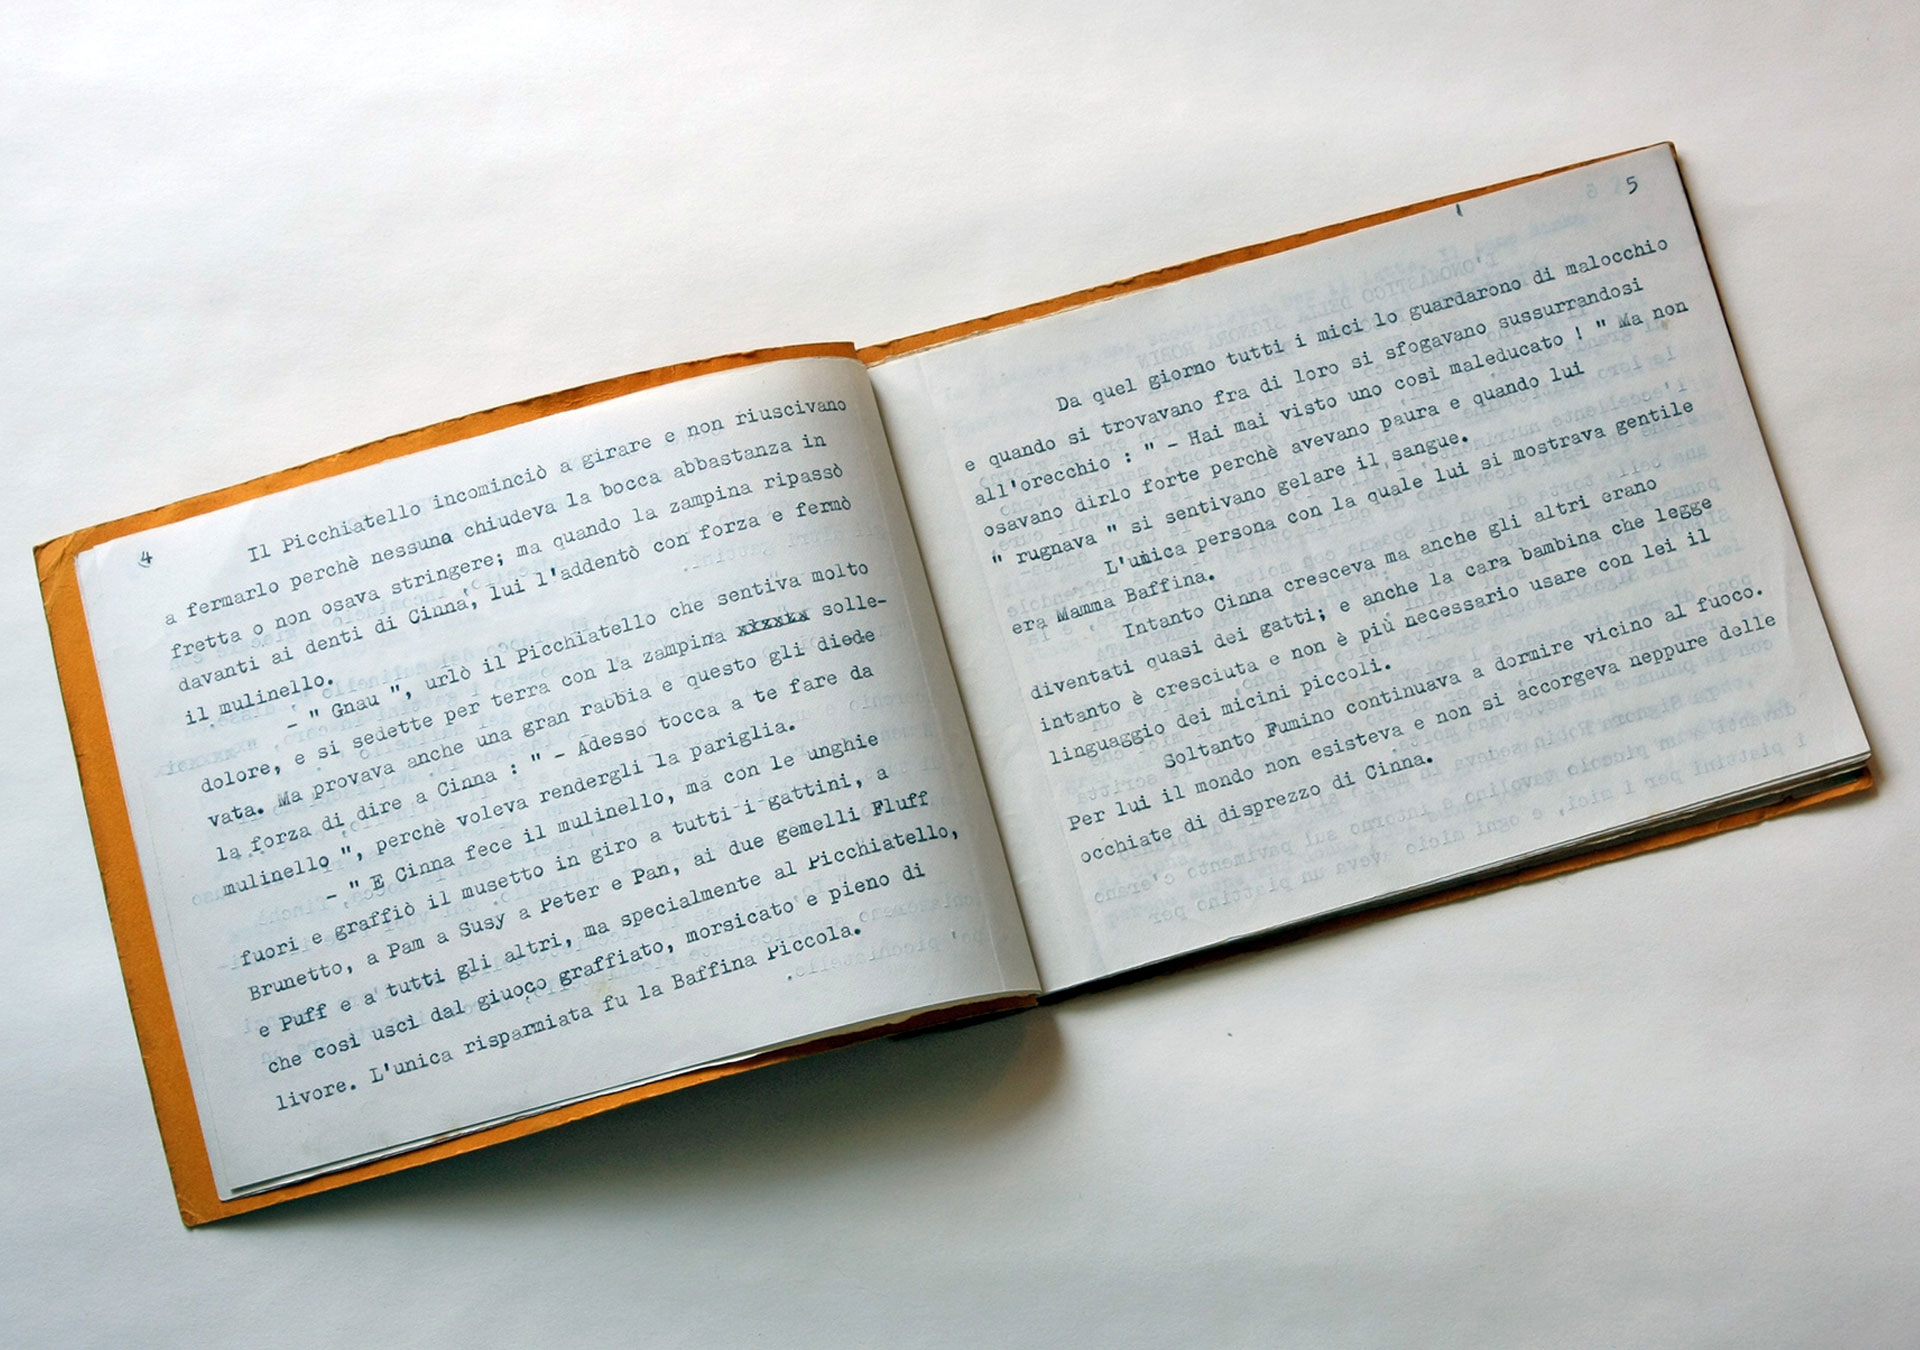 4
Il Picchiatello incominciò a girare e non riuscivano
a fermarlo perchè nessuna chiudeva la bocca abbastanza in
fretta o non osava stringere; ma quando la zampina ripassò
davanti ai denti di Cinna, lui l'addentò con forza e fermò
il mulinello.
- " Gnau ", urlò il Picchiatello che sentiva molto
dolore, e si sedette per terra con la zampina xxxxxx solle-
vata. Ma provava anche una gran rabbia e questo gli diede
la forza di dire a Cinna : " - Adesso tocca a te fare da
mulinello ", perchè voleva rendergli la pariglia.
- " E Cinna fece il mulinello, ma con le unghie
fuori e graffiò il musetto in giro a tutti i gattini, a
Brunetto, a Pam a Susy a Peter e Pan, ai due gemelli Fluff
e Puff e a tutti gli altri, ma specialmente al Picchiatello,
che così uscì dal giuoco graffiato, morsicato e pieno di
livore. L'unica risparmiata fu la Baffina Piccola.
5
Da quel giorno tutti i mici lo guardarono di malocchio
e quando si trovavano fra di loro si sfogavano sussurrandosi
all'orecchio : " - Hai mai visto uno così maleducato ! " Ma non
osavano dirlo forte perchè avevano paura e quando lui
" rugnava " si sentivano gelare il sangue.
L'unica persona con la quale lui si mostrava gentile
era Mamma Baffina.
Intanto Cinna cresceva ma anche gli altri erano
diventati quasi dei gatti; e anche la cara bambina che legge
intanto è cresciuta e non è più necessario usare con lei il
linguaggio dei micini piccoli.
Soltanto Fumino continuava a dormire vicino al fuoco.
Per lui il mondo non esisteva e non si accorgeva neppure delle
occhiate di disprezzo di Cinna.